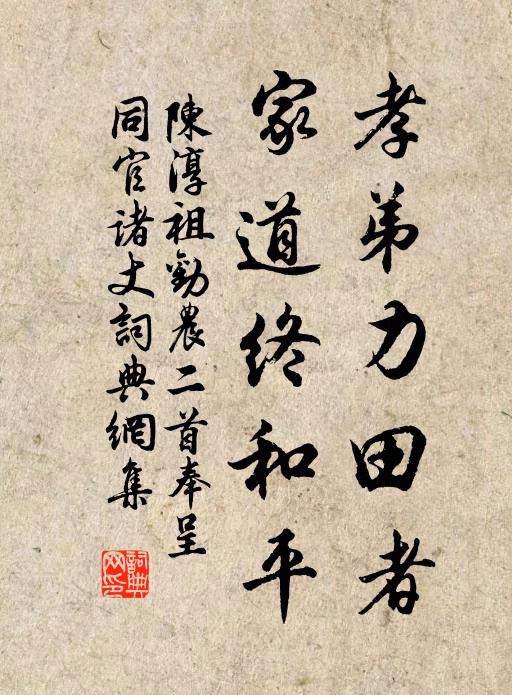 孝弟力田者
家道終和平
陳淳祖勸農二首奉呈
同官諸丈詞典網集
詞典
网印